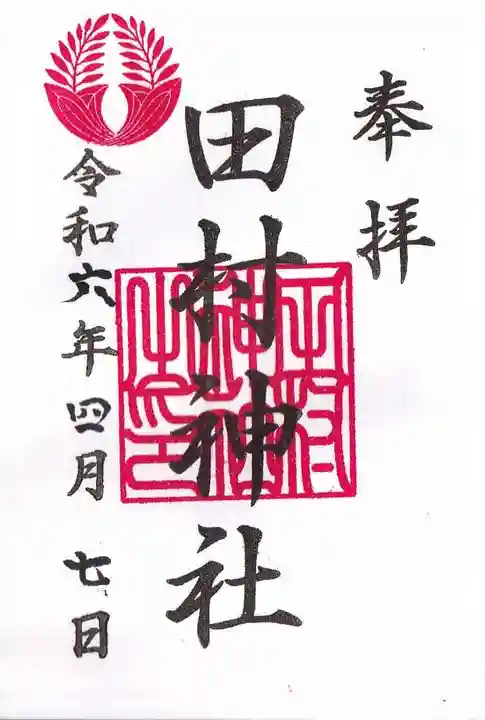 奉拝
田村神社
令和六年四月七日